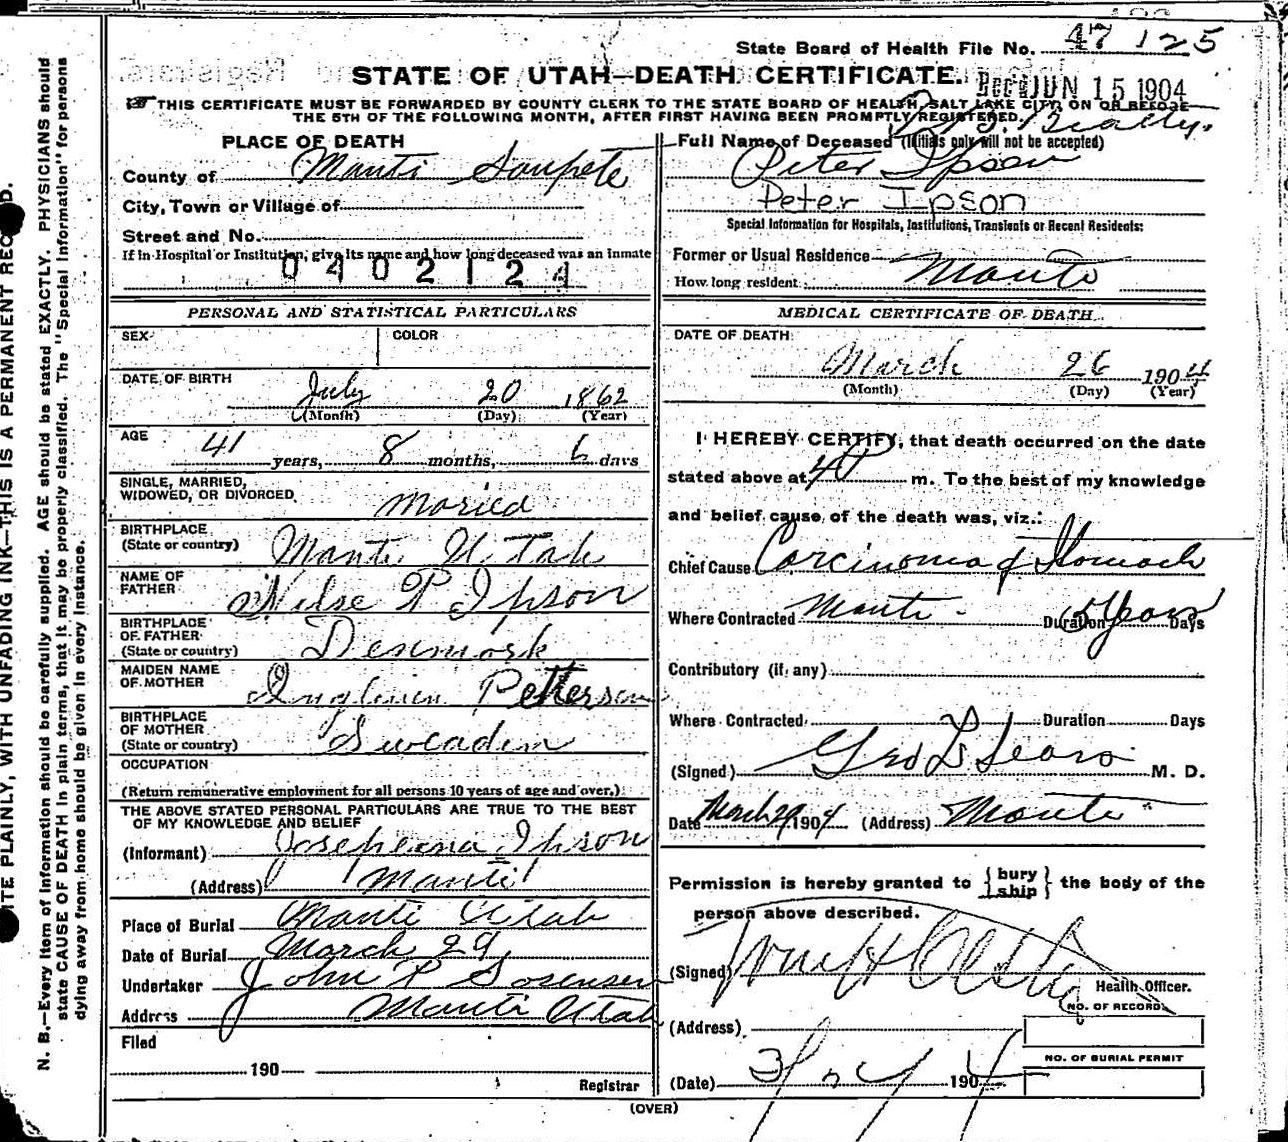 State Board of Health File No. 47 125
STATE OF UTAH—DEATH CERTIFICATE.
Rec'd JUN 15 1904
THIS CERTIFICATE MUST BE FORWARDED BY COUNTY CLERK TO THE STATE BOARD OF HEALTH, SALT LAKE CITY, ON OR BEFORE
THE 5TH OF THE FOLLOWING MONTH, AFTER FIRST HAVING BEEN PROMPTLY REGISTERED.
PLACE OF DEATH
County of Manti Sanpete
City, Town or Village of
Street and No.
If in Hospital or Institution, give its name and how long deceased was an inmate
0402124
Full Name of Deceased (Initials only will not be accepted)
Peter Ipson
Peter Ipson
Special Information for Hospitals, Institutions, Transients or Recent Residents:
Former or Usual Residence Manti
How long resident
PERSONAL AND STATISTICAL PARTICULARS
SEX
COLOR
DATE OF BIRTH
July 20 1862
(Month) (Day) (Year)
AGE
41 years, 8 months, 6 days
SINGLE, MARRIED,
WIDOWED, OR DIVORCED
Maried
BIRTHPLACE
(State or country) Manti Utah
NAME OF
FATHER Nilse P Ipson
BIRTHPLACE
OF FATHER
(State or country) Denmark
MAIDEN NAME
OF MOTHER Petterson
BIRTHPLACE
OF MOTHER
(State or country) Sweaden
OCCUPATION
(Return remunerative employment for all persons 10 years of age and over.)
THE ABOVE STATED PERSONAL PARTICULARS ARE TRUE TO THE BEST
OF MY KNOWLEDGE AND BELIEF
(Informant) Josepheana Ipson
(Address) Manti
Place of Burial Manti Utah
Date of Burial March 29
Undertaker John P Sorensen
Address Manti Utah
Filed
190
Registrar
MEDICAL CERTIFICATE OF DEATH
DATE OF DEATH:
March 26 1904
(Month) (Day) (Year)
I HEREBY CERTIFY, that death occurred on the date
stated above at 4 P m. To the best of my knowledge
and belief cause of the death was, viz.:
Chief Cause Carcinoma of Stomach
Where Contracted Manti Duration Years Days
Contributory (if any)
Where Contracted Duration Days
(Signed) Geo L Sears M. D.
Date March 29 1904 (Address) Manti
Permission is hereby granted to {bury ship} the body of the
person above described.
(Signed)
Health Officer.
NO. OF RECORD
(Address)
NO. OF BURIAL PERMIT
(Date) 1904
(OVER)
N. B.—Every item of information should be carefully supplied. AGE should be stated EXACTLY. PHYSICIANS should
state CAUSE OF DEATH in plain terms, that it may be properly classified. The "Special Information" for persons
dying away from home should be given in every instance.
ITE PLAINLY, WITH UNFADING INK—THIS IS A PERMANENT RECORD.